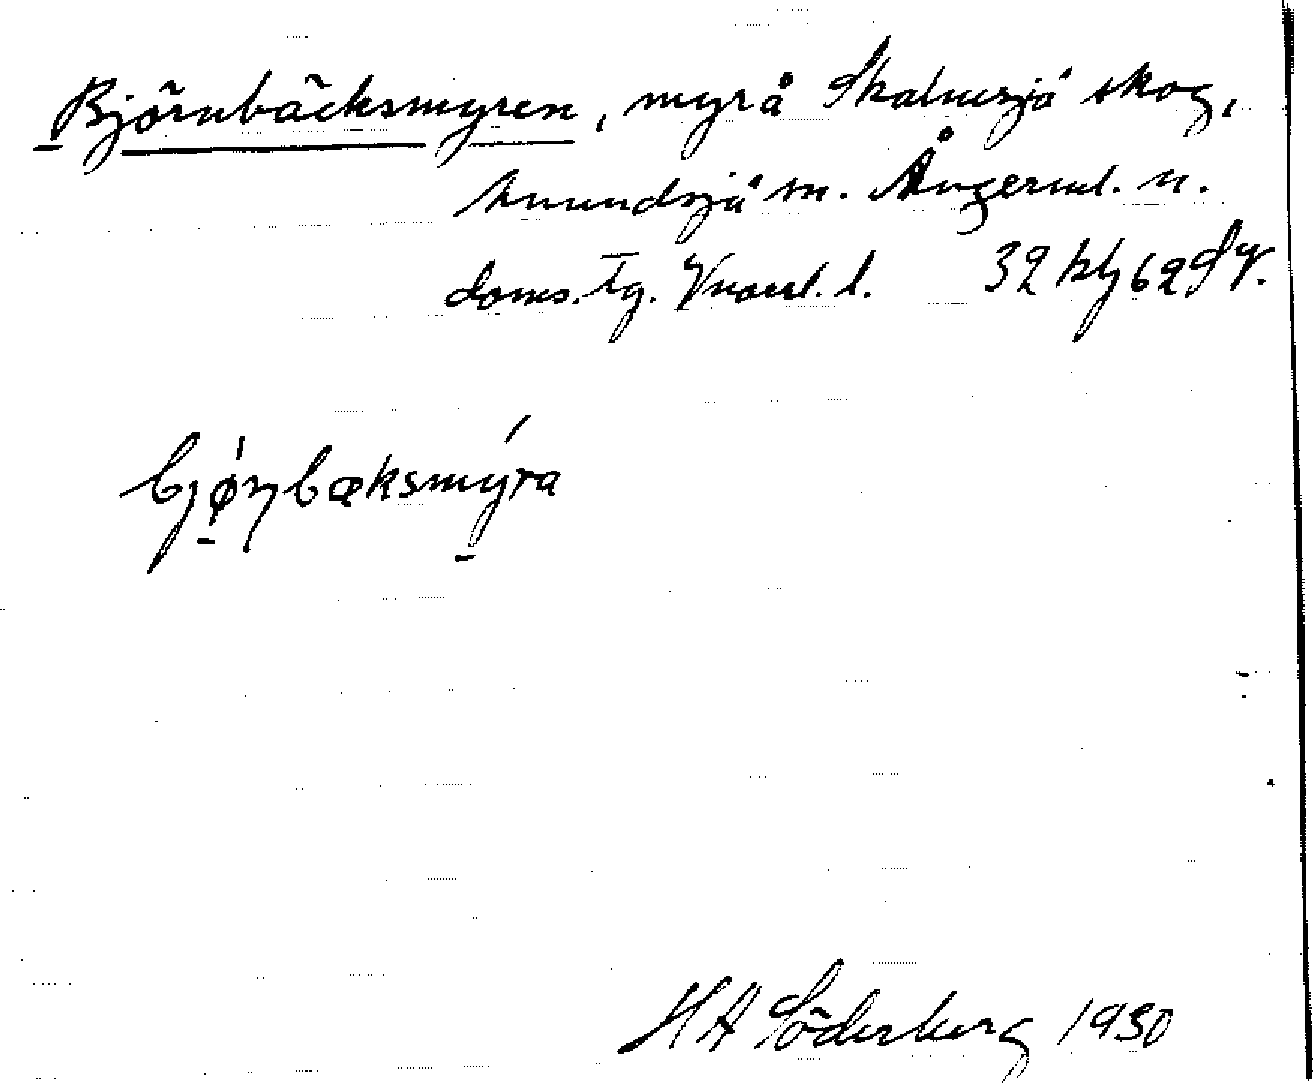 Björnbäcksmyren, myr å Skalmsjö skog,
Anundsjö sn. Ångerml. n.
doms. tg. Vnorrl. l. 32 Hg 62 df y.
bjøṇbæksmýra
H A Söderberg 1930